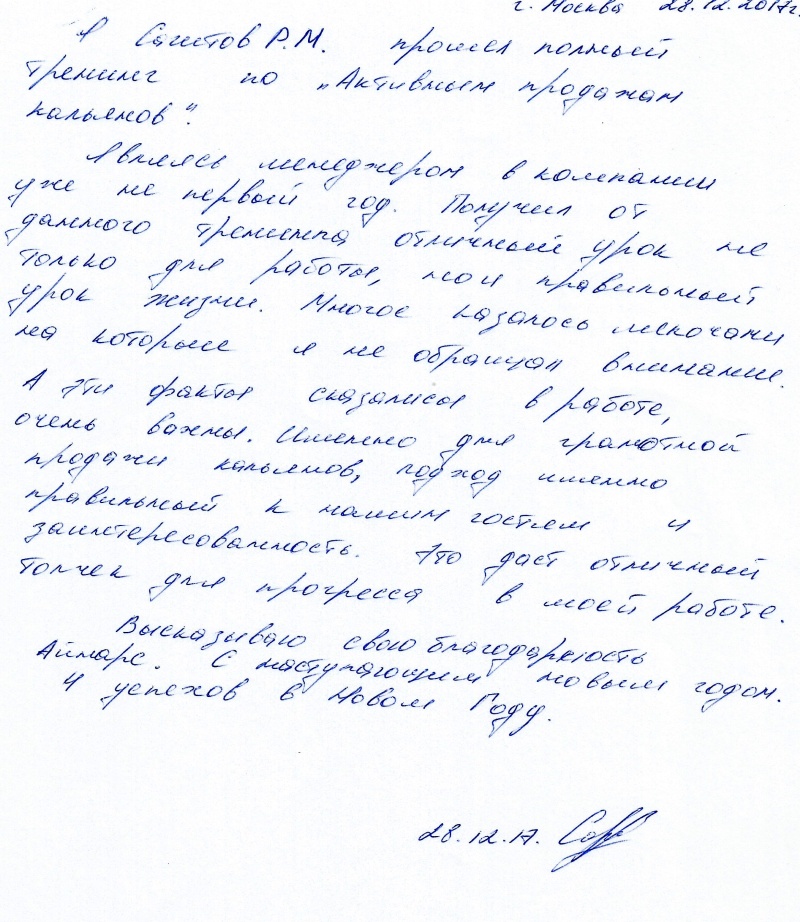 г. Москва 28.12.2017г.
Я Сагитов Р.М. прошел полный
тренинг по „Активным продажам
кальянов".
Являясь менеджером в компании
уже не первый год. Получил от
данного тренинга отличный урок не
только для работы, но и правильный
урок жизни. Многое казалось мелочами
на которые я не обращал внимание.
А эти факты сказались в работе,
очень важны. Именно для грамотной
продажи кальянов, подход именно
правильный к нашим гостям и
заинтересованность. Это даст отличный
толчек для прогресса в моей работе.
Высказываю свою благодарность
Айнаре. С наступающим новым годом.
И успехов в Новом Году.
28.12.17.